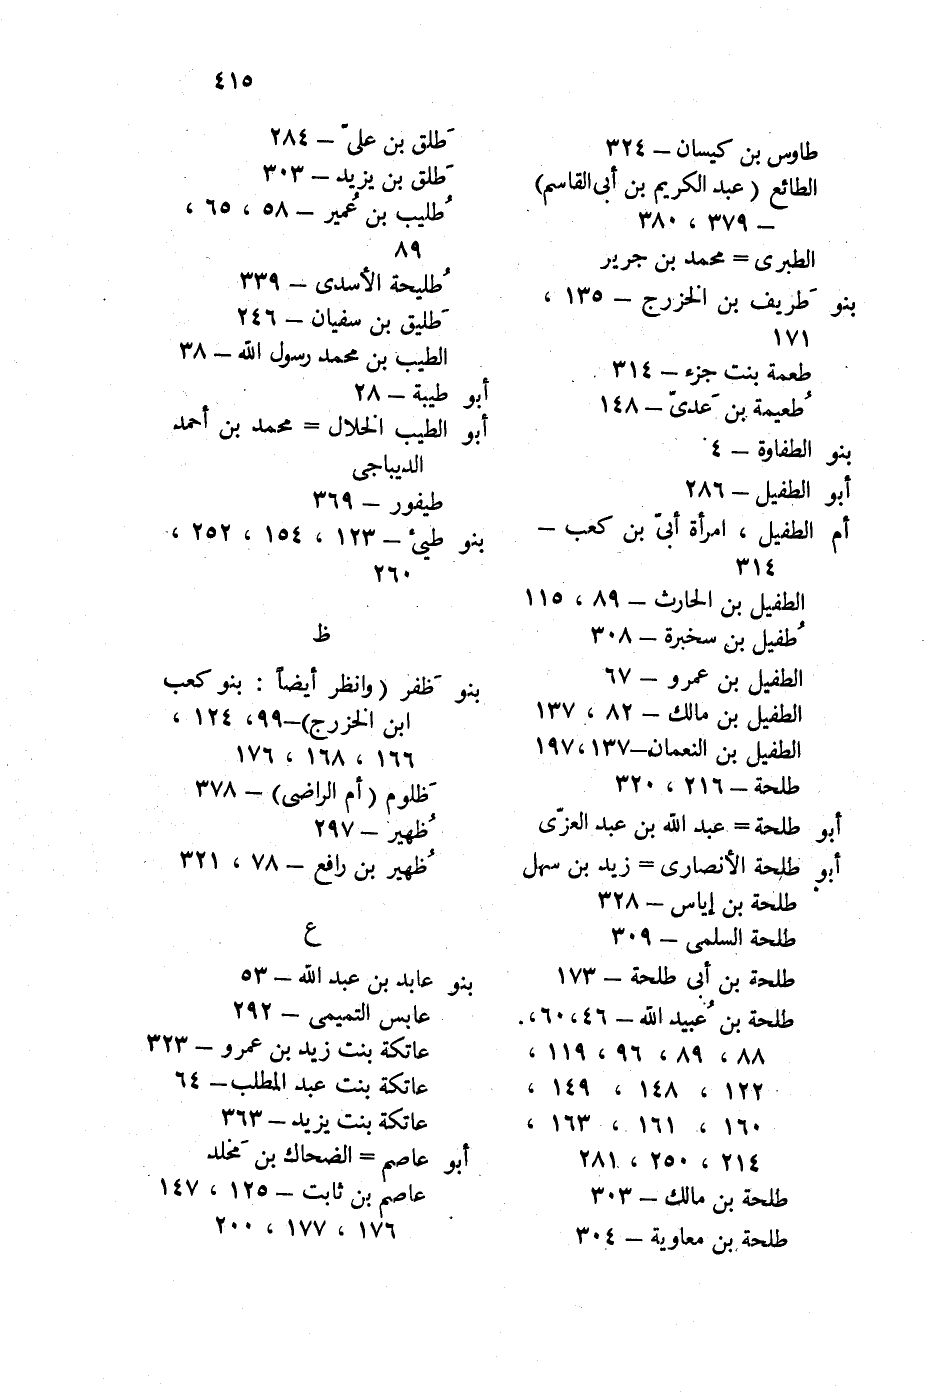 ٤١٥
طاوس بن كيسان – ٣٢٤
الطائع ( عبد الكريم بن أبى القاسم)
– ٣٧٩ ، ٣٨٠
الطبرى = محمد بن جرير
بنو طَريف بن الخزرج – ١٣٥ ،
١٧١
طعمة بنت جزء – ٣١٤
طُعيمة بن عَدىّ – ١٤٨
بنو الطفاوة – ٤
أبو الطفيل – ٢٨٦
أم الطفيل ، امرأة أبىّ بن كعب –
٣١٤
الطفيل بن الحارث – ٨٩ ، ١١٥
طُفيل بن سخبرة – ٣٠٨
الطفيل بن عمرو – ٦٧
الطفيل بن مالك – ٨٢ ، ١٣٧
الطفيل بن النعمان–١٣٧، ١٩٧
طلحة – ٢١٦ ، ٣٢٠
أبو طلحة = عبد الله بن عبد العزّى
أبو طلحة الأنصارى = زيد بن سهل
طلحة بن إياس – ٣٢٨
طلحة السلمى – ٣٠٩
طلحة بن أبى طلحة – ١٧٣
طلحة بن عُبيد الله – ٤٦، ٦٠،
٨٨ ، ٨٩ ، ٩٦ ، ١١٩ ،
١٢٢ ، ١٤٨ ، ١٤٩ ،
١٦٠ ، ١٦١ ، ١٦٣ ،
٢١٤ ، ٢٥٠ ، ٢٨١
طلحة بن مالك – ٣٠٣
طلحة بن معاوية – ٣٠٤
طَلق بن علىّ – ٢٨٤
طَلق بن يزيد – ٣٠٣
طُليب بن عُمير – ٥٨ ، ٦٥ ،
٨٩
طُليحة الأسدى – ٣٣٩
طَليق بن سفيان – ٢٤٦
الطيب بن محمد رسول الله – ٣٨
أبو طيبة – ٢٨
أبو الطيب الخلال = محمد بن أحمد
الديباجى
طيفور – ٣٦٩
بنو طيئ – ١٢٣ ، ١٥٤ ، ٢٥٢ ،
٢٦٠
ظ
بنو ظَفر ( وانظر أيضاً : بنو كعب
ابن الخزرج)–٩٩، ١٢٤ ،
١٦٦ ، ١٦٨ ، ١٧٦
ظَلوم (أم الراضى) – ٣٧٨
ظُهير – ٢٩٧
ظُهير بن رافع – ٧٨ ، ٣٢١
ع
بنو عابد بن عبد الله – ٥٣
عابس التميمى – ٢٩٢
عاتكة بنت زيد بن عمرو – ٣٢٣
عاتكة بنت عبد المطلب– ٦٤
عاتكة بنت يزيد – ٣٦٣
أبو عاصم = الضحاك بن مَخلد
عاصم بن ثابت – ١٢٥ ، ١٤٧
١٧٦ ، ١٧٧ ، ٢٠٠